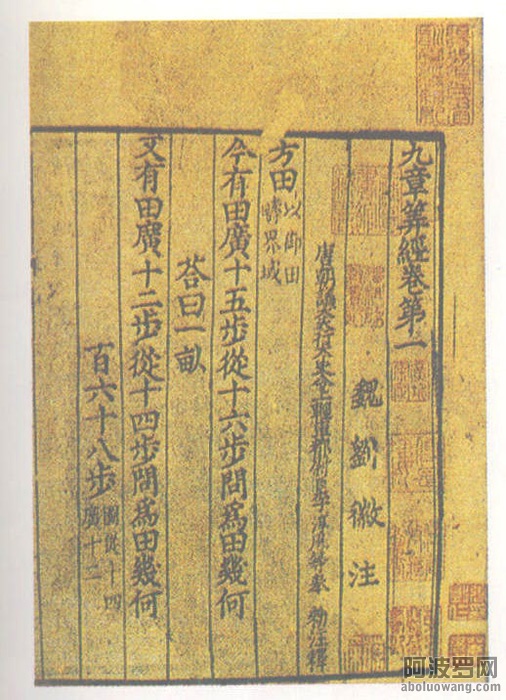 九章筭經卷第一
魏劉徽注
唐朝議大夫行太史令上輕車都尉臣李淳風等奉 勑注釋
方田以御田疇界域
今有田廣十五步從十六步問爲田幾何
荅曰一畝
又有田廣十二步從十四步問爲田幾何
百六十八步圖從十四廣十二
阿波罗网
aboluowang.com